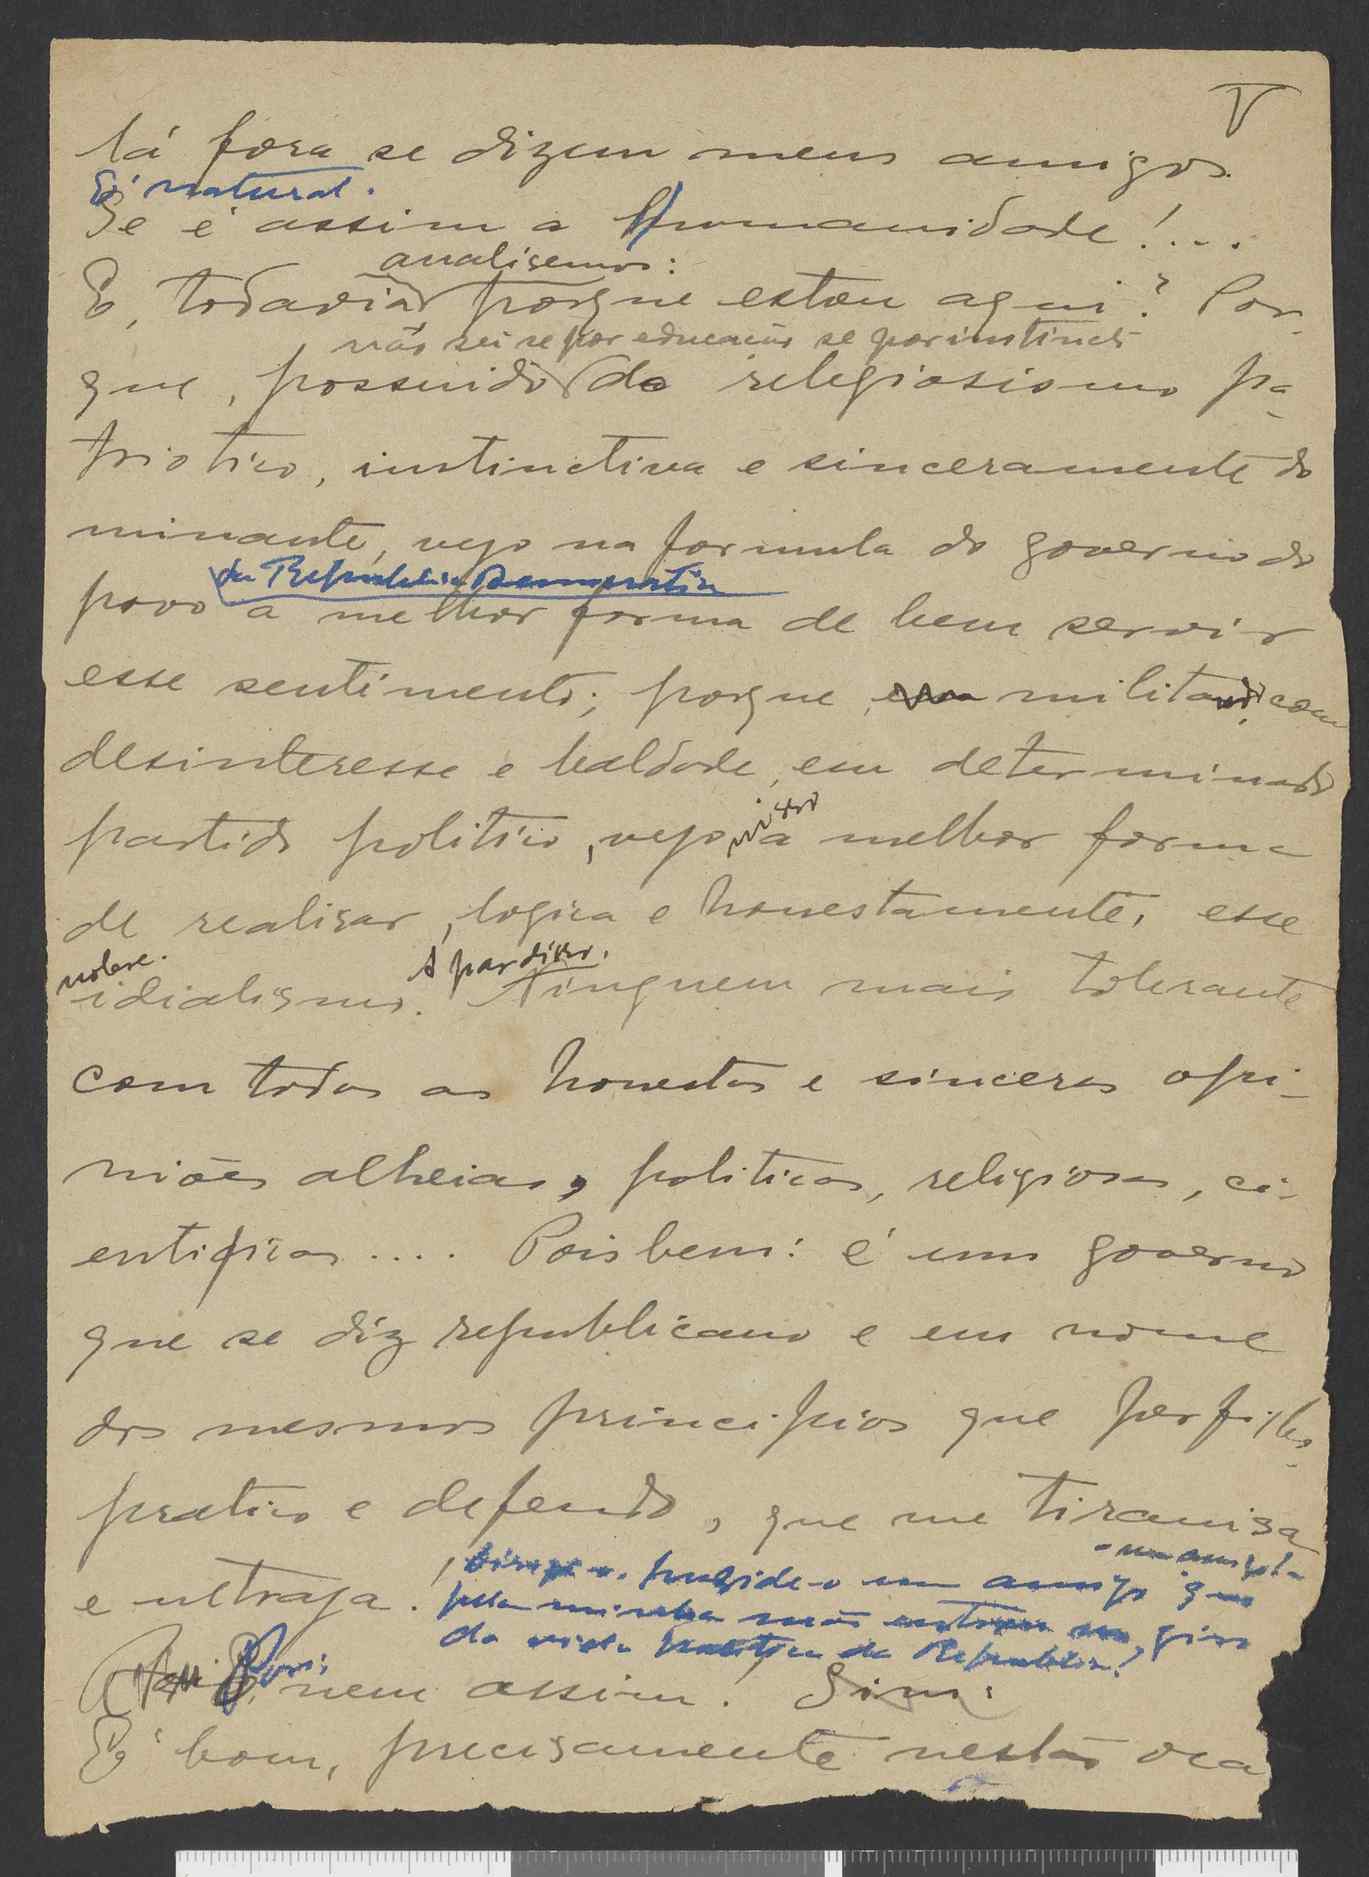 V
lá fora se dizem meus amigos.
E' natural.
Se é assim a humanidade!...
analisemos:
E, todavia, porque estou aqui? Por-
não sei se por educação se por instincto
que, possuido do religiosismo pa-
triotico, instinctiva e sinceramente do
minante, vejo na formula do governo do
da Republica Democratica
povo a melhor forma de bem servir
esse sentimento; porque, militando, com
desinteresse e lealdade, em determinado
partido politico, vejo nisso a melhor forma
de realisar, logica e honestamente, esse
nobre.
A par disso.
idialismo. Ninguem mais tolerante
com todas as honestas e sinceras opi-
niões alheias, politicas, religiosas, ci-
entificas.... Pois bem: é um governo
que se diz republicano e em nome
dos mesmos principios que perfilho,
pratico e defendo, que me tiranisa
e ultraja!
preside-o um amigo que
pela minha mão
da vida politica da Republica!
Pois nem assim! Sim:
E' bom, precisamente nesta oca